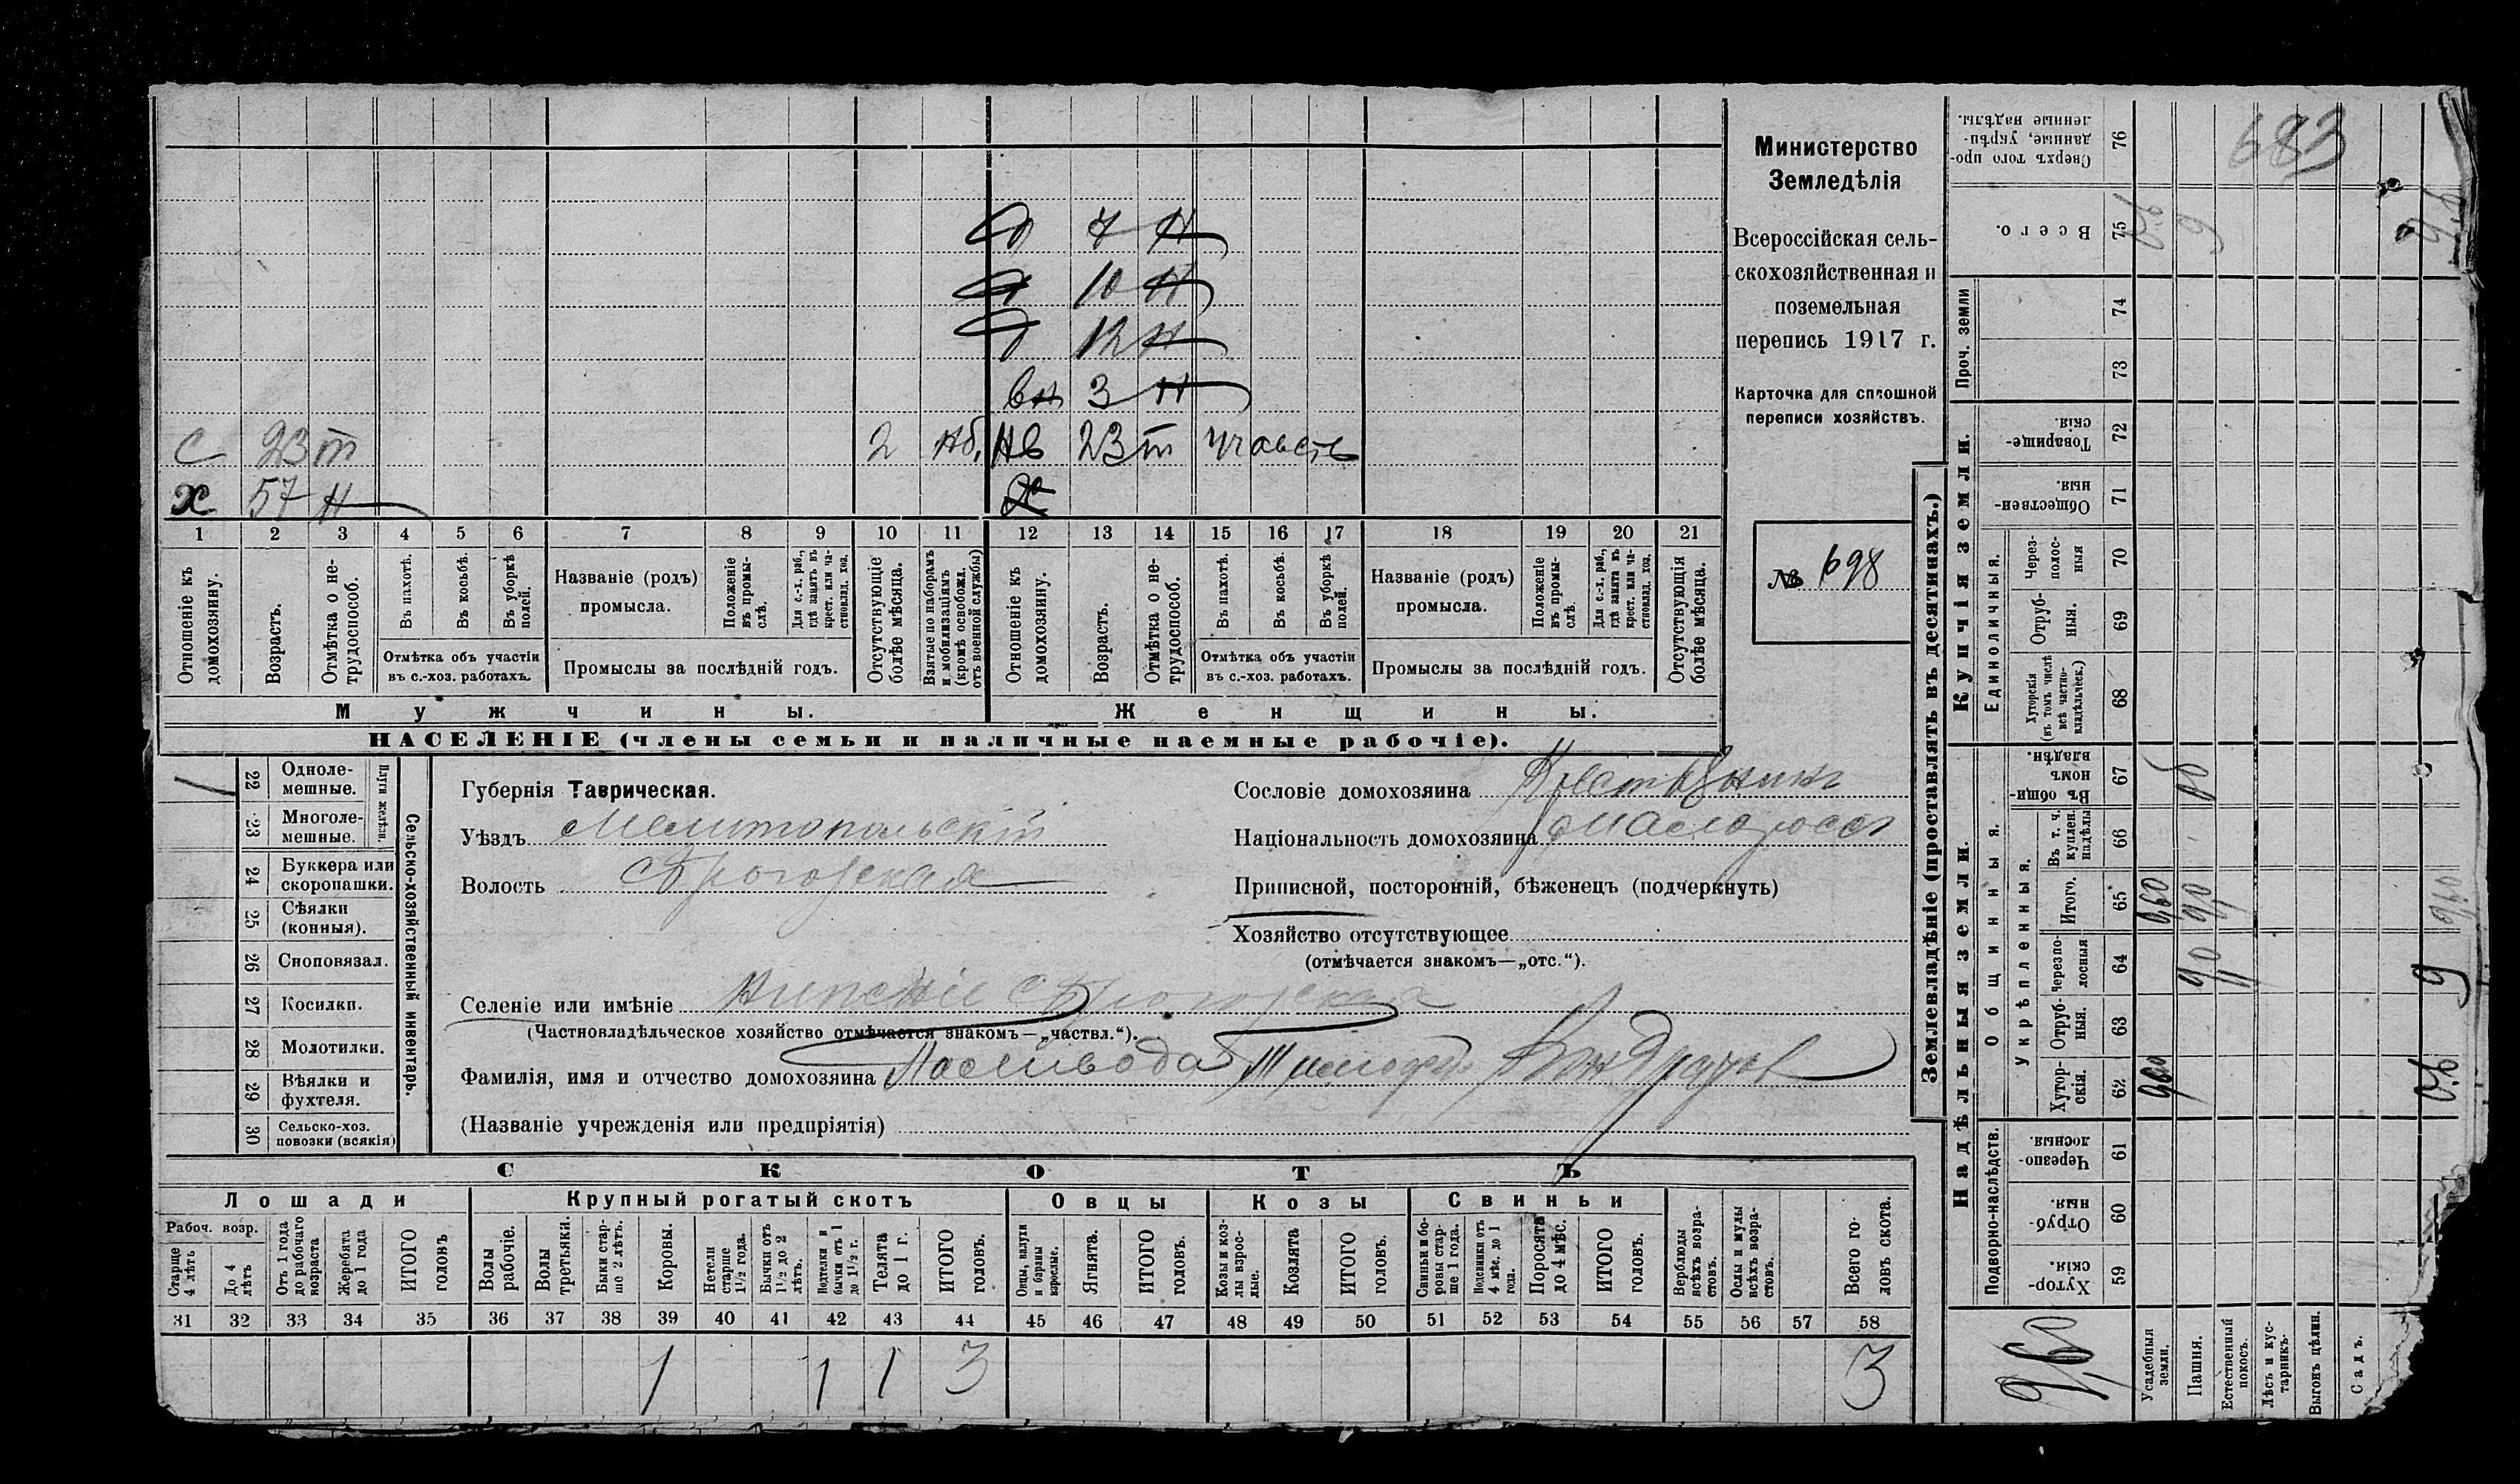 Министерство
Земледѣлія
Всероссійская сель-
скохозяйственная и
поземельная
перепись 1917 г.
Карточка для сплошной
переписи хозяйствъ.
№ 698
д 7 н
д 10 н
д 12 н
вн 3 н
с 23 т 2 мб. нв 23 т участь
х 57 н х
1 2 3 4 5 6 7 8 9 10 11 12 13 14 15 16 17 18 19 20 21
Отношеніе къ домохозяину.
Возрастъ.
Отмѣтка о не-трудоспособ.
Въ пахотѣ.
Въ косьбѣ.
Въ уборкѣ полей.
Отмѣтка объ участіи
въ с.-хоз. работахъ.
Названіе (родъ)
промысла.
Положеніе въ промы-слѣ.
Для с.-х. раб., гдѣ занятъ въ крест. или ча-стновлад. хоз.
Промыслы за послѣдній годъ.
Отсутствующіе болѣе мѣсяца.
Взятые по наборамъ и мобилизаціямъ (кромѣ освобожд. отъ военной службы)
Отношеніе къ домохозяину.
Возрастъ.
Отмѣтка о не-трудоспособ.
Въ пахотѣ.
Въ косьбѣ.
Въ уборкѣ полей.
Отмѣтка объ участіи
въ с.-хоз. работахъ.
Названіе (родъ)
промысла.
Положеніе въ промы-слѣ.
Для с.-х. раб., гдѣ занята въ крест. или ча-стновлад. хоз.
Промыслы за послѣдній годъ.
Отсутствующія болѣе мѣсяца.
Мужчины. Женщины.
НАСЕЛЕНІЕ (члены семьи и наличные наемные рабочіе).
Сельско-хозяйственный инвентарь.
Плуги желѣзн.
1 22 Одноле-мешные.
23 Многоле-мешные.
24 Буккера или скоропашки.
25 Сѣялки (конныя).
26 Сноповязал.
27 Косилки.
28 Молотилки.
29 Вѣялки и фухтеля.
30 Сельско-хоз. повозки (всякія)
Губернія Таврическая.
Уѣздъ Мелитопольскій
Волость Сѣрогозская
Селеніе или имѣніе Нижніе Сѣрогозская
(Частновладѣльческое хозяйство отмѣчается знакомъ—„частвл.“).
Фамилія, имя и отчество домохозяина Тимофей
(Названіе учрежденія или предпріятія)
Сословіе домохозяина Крестьянинъ
Національность домохозяина Малоросс
Приписной, посторонній, бѣженецъ (подчеркнуть)
Хозяйство отсутствующее
(отмѣчается знакомъ—„отс.“).
СКОТЪ
Лошади Крупный рогатый скотъ Овцы Козы Свиньи
Рабоч. возр.
Старше 4 лѣтъ
До 4 лѣтъ
Отъ 1 года до рабочаго возраста
Жеребята до 1 года
ИТОГО головъ
Волы рабочіе.
Волы третьяки.
Быки стар-ше 2 лѣтъ.
Коровы.
Нетели старше 1½ года.
Бычки отъ 1½ до 2 лѣтъ.
Подтелки и бычки отъ 1 до 1½ г.
Телята до 1 г.
ИТОГО головъ.
Овцы, валухи и бараны взрослые.
Ягнята.
ИТОГО головъ.
Козы и коз-лы взрос-лые.
Козлята
ИТОГО головъ.
Свиньи и бо-ровы стар-ше 1 года.
Подсвинки отъ 4 мѣс. до 1 года.
Поросята до 4 мѣс.
ИТОГО головъ.
Верблюды всѣхъ возра-стовъ.
Ослы и мулы всѣхъ возра-стовъ.
Всего го-ловъ скота.
31 32 33 34 35 36 37 38 39 40 41 42 43 44 45 46 47 48 49 50 51 52 53 54 55 56 57 58
1 1 1 3 3
Землевладѣніе (проставлять въ десятинахъ.)
Купчія земли.
Надѣльныя земли.
Проч. земли
Единоличныя.
Общинныя.
Укрѣпленныя.
Подворно-наслѣдств.
76 Сверхъ того про-данные, укрѣп-ленные надѣлы.
683
75 Всего.
74
73
72 Товарище-скія.
71 Обществен-ныя.
70 Через-полос-ныя
69 Отруб-ныя.
68 Хуторскія (въ томъ числѣ всѣ частно-владѣльческ.)
67 Въ общин-номъ владѣн.
66 Въ т. ч. куплен. надѣлы
65 Итого.
64 Черезпо-лосныя
63 Отруб-ныя.
62 Хутор-скія.
61 Черезпо-лосныя.
60 Отруб-ныя.
59 Хутор-скія.
Усадебныя земли.
Пашня.
Естественный покосъ.
Лѣсъ и кус-тарникъ.
Выгонъ цѣлин.
Садъ.